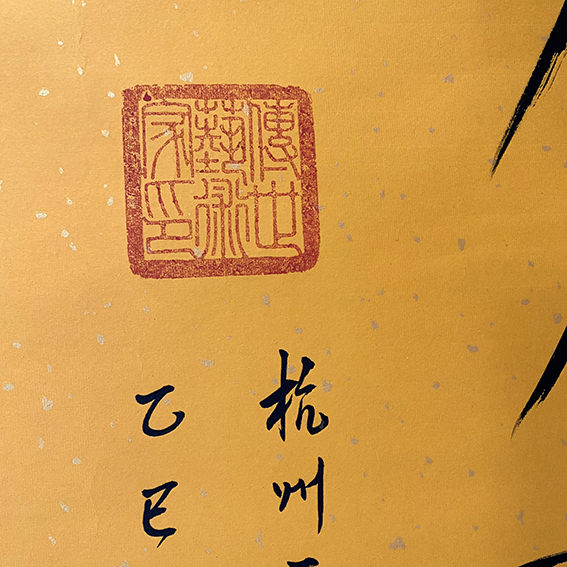 傳世
藝術
家印
杭州
乙巳